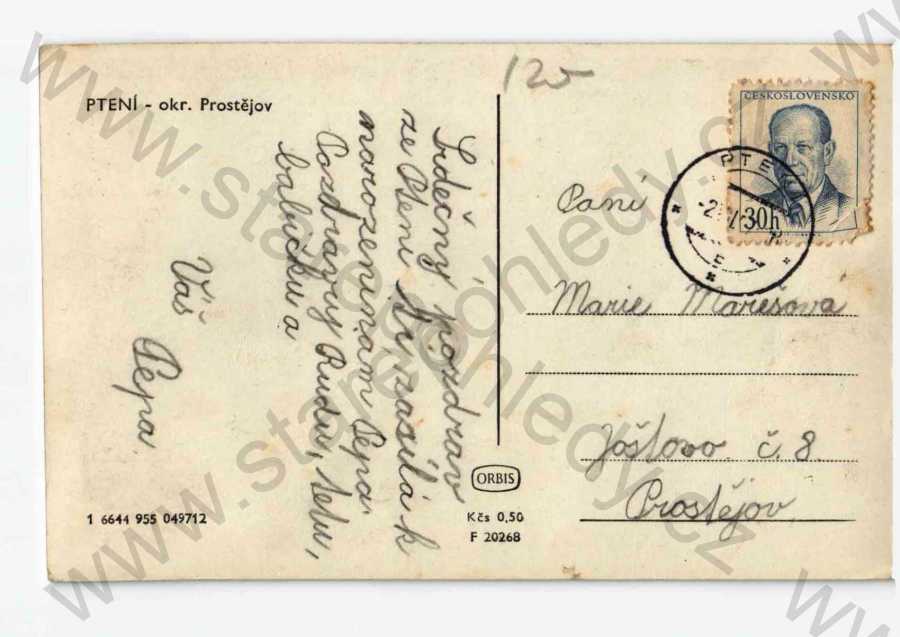 PTENÍ - okr. Prostějov
120
Srdečný pozdrav
ze Ptení Vám zasílá k
narozeninám Pepa.
Pozdravuj Rudu, tetu,
babičku a
Váš
Pepa
1 6644 955 049712
ORBIS
Kčs 0,50
F 20268
ČESKOSLOVENSKO
30h
PTE
Paní
Marie Marešová
Joštovo č. 8.
Prostějov
www.starepohledy.cz